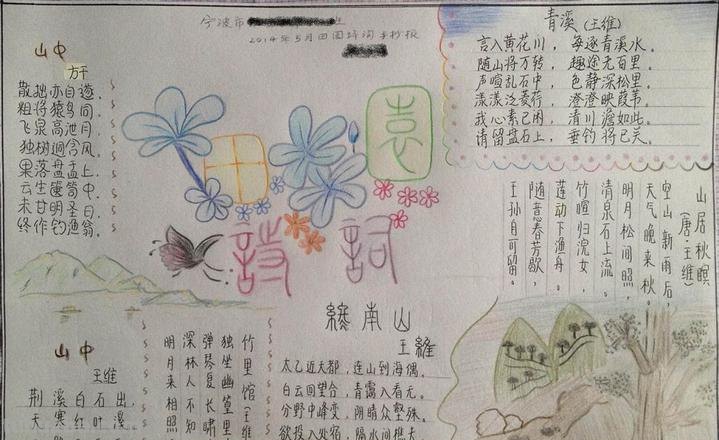 宁波市
2014年5月田园诗词手抄报
山中
方干
散拙亦自遂,
粗将猿鸟同。
飞泉高泻月,
独树迥含风。
果落盘盂上,
云生箧笥中。
未甘明圣日,
终作钓渔翁。
田
園
詩詞
青溪(王维)
言入黄花川,每逐青溪水。
随山将万转,趣途无百里。
声喧乱石中,色静深松里。
漾漾泛菱荇,澄澄映葭苇。
我心素已闲,清川澹如此。
请留盘石上,垂钓将已矣。
山居秋暝
(唐·王维)
空山新雨后,
天气晚来秋。
明月松间照,
清泉石上流。
竹喧归浣女,
莲动下渔舟。
随意春芳歇,
王孙自可留。
山中
王维
荆溪白石出,
天寒红叶
竹里馆(王维
独坐幽篁里
弹琴复长啸
深林人不知
明月来相照
终南山
王維
太乙近天都,连山到海隅。
白云回望合,青霭入看无。
分野中峰变,阴晴众壑殊。
欲投人处宿,隔水问樵夫。